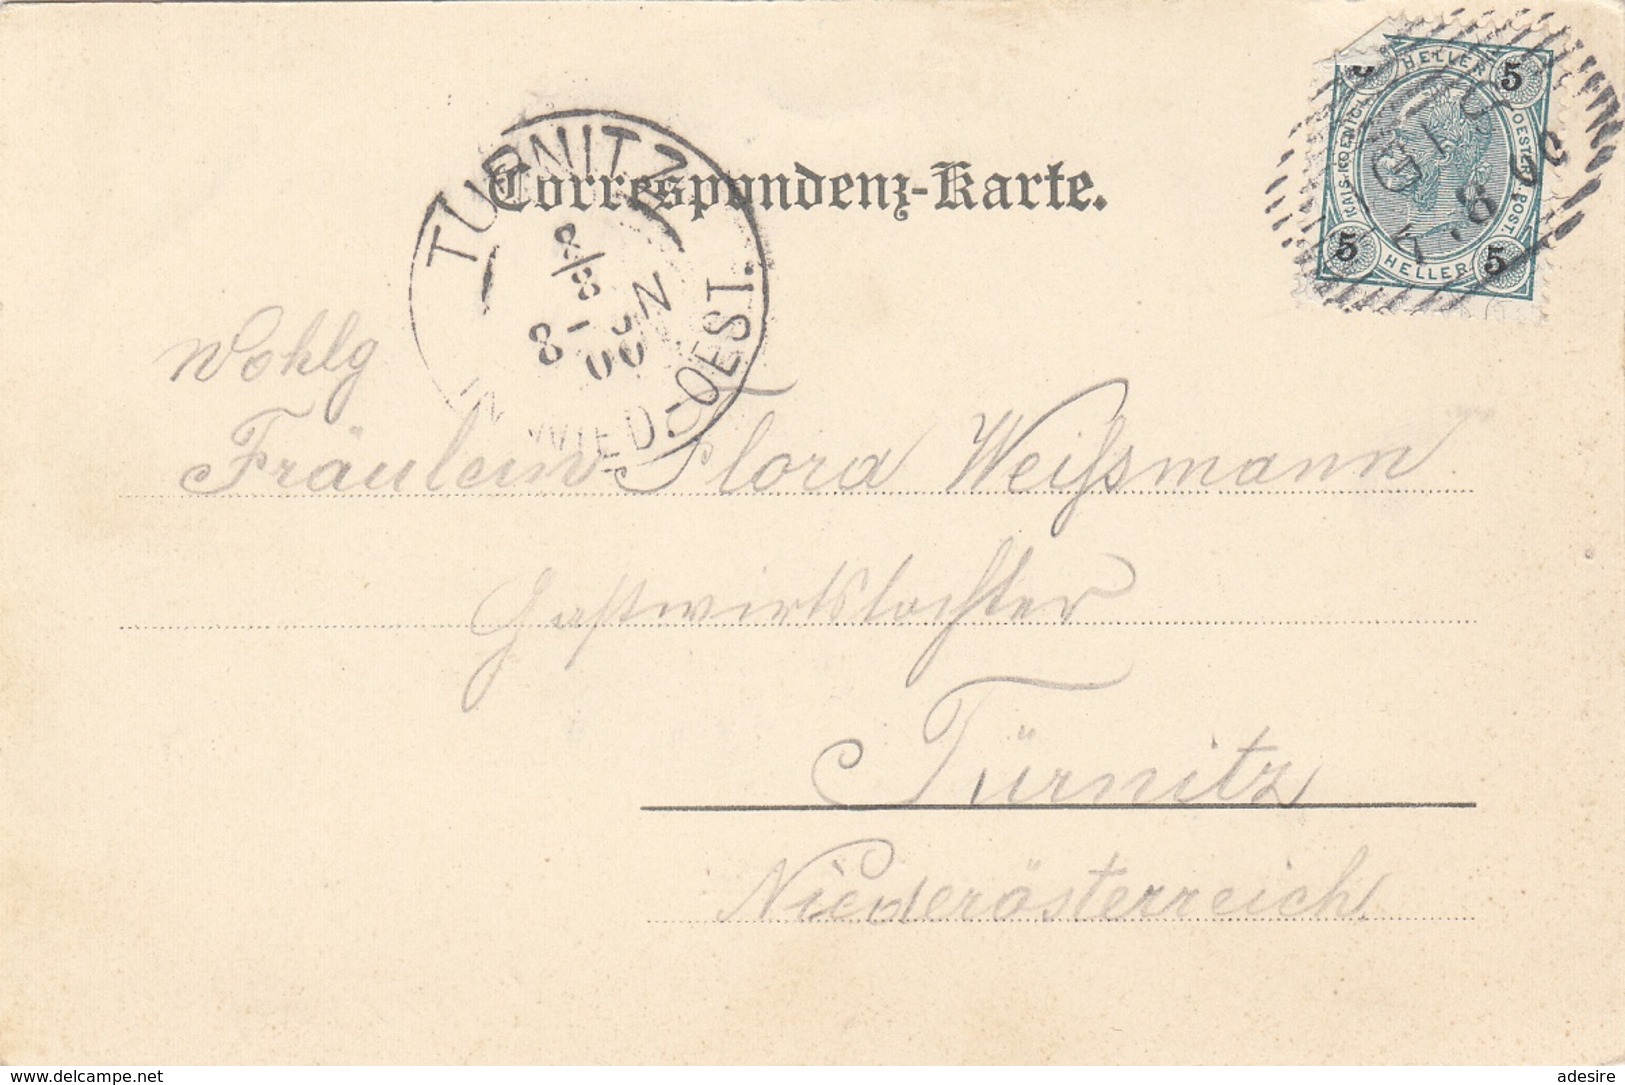 Correspondenz-Karte.
TÜRNITZ
8/8
8 - 00 N
IN NIED.-OEST.
KAIS. KOENIGL. OESTERR. POST
5 HELLER 5
5 HELLER 5
8. 00
Wohlg
Fräulein Flora Weißmann
Gastwirtstochter
Türnitz
Niederösterreich
delcampe.net
adesire